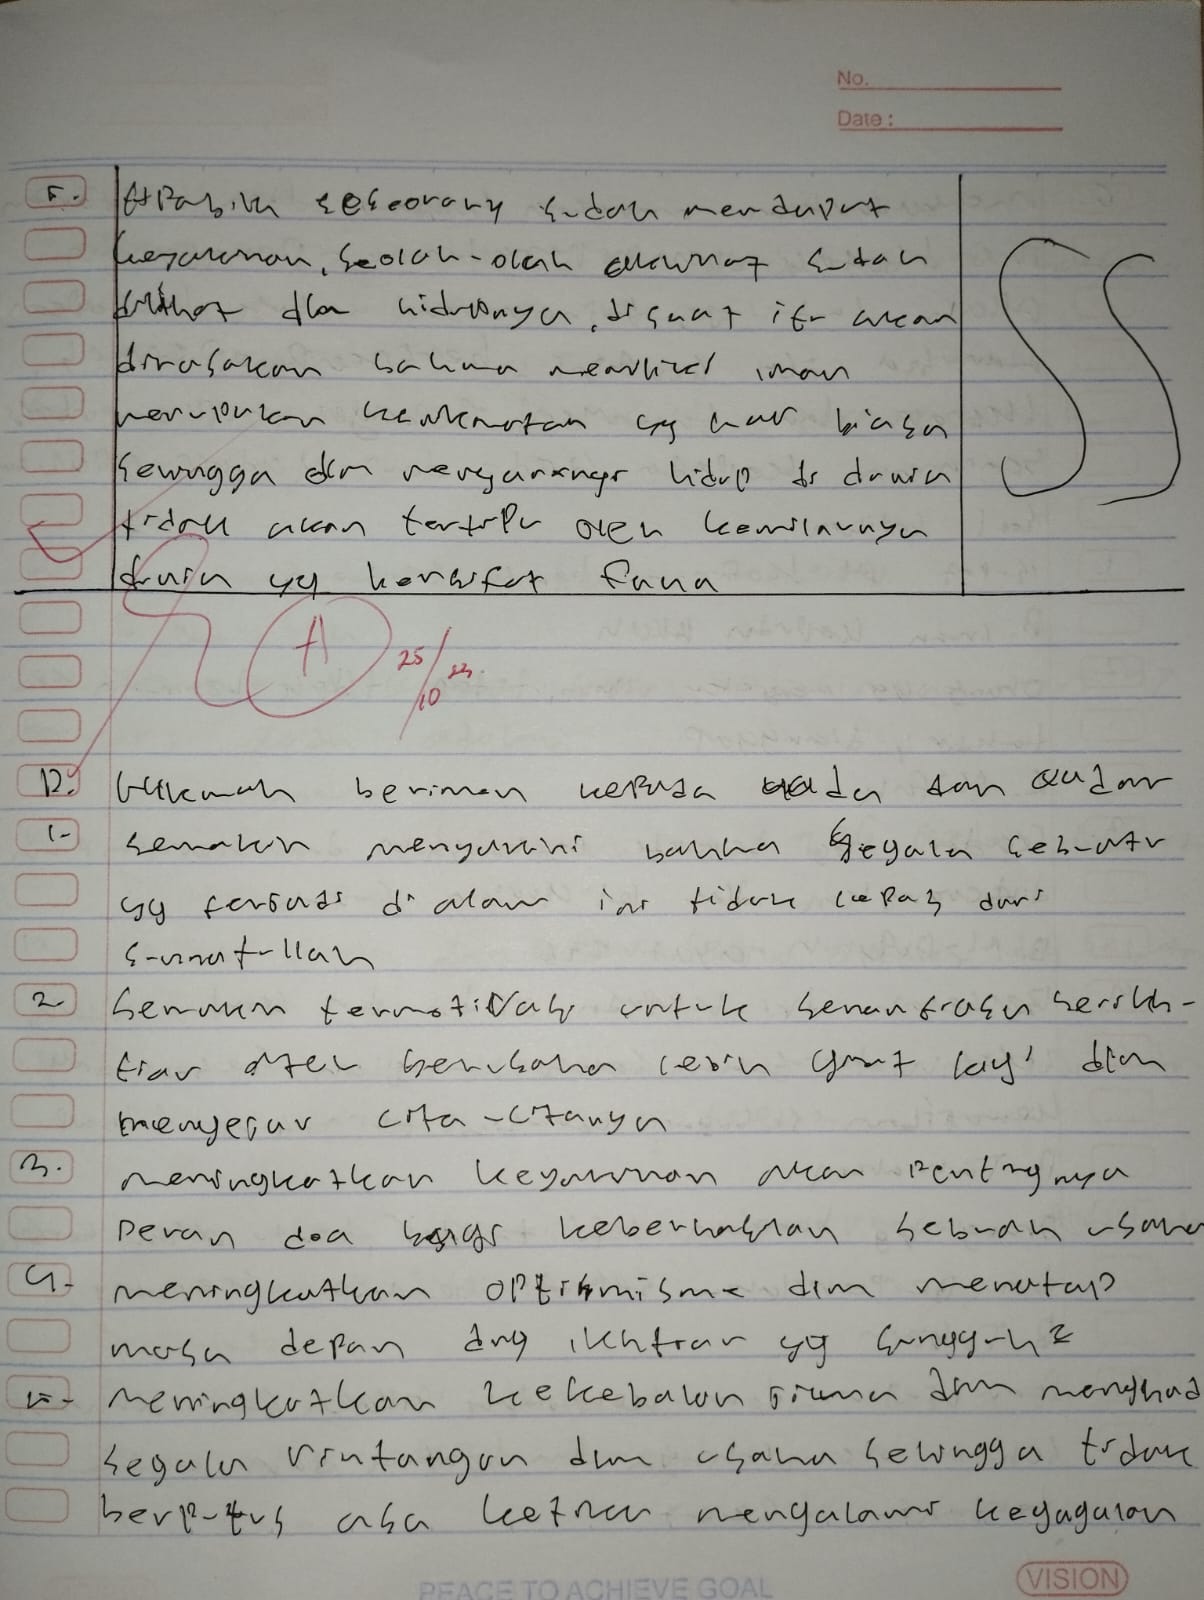 No.
Date :
5. Apabila seseorang sudah mendapat
keyakinan, seolah-olah akhirat sudah
dlm hidupnya, disaat itu akan
dirasakan bahwa memiliki iman
merupakan kenikmatan yg luar biasa
sehingga dlm mengarungi hidup di dunia
tidak akan tertipu oleh kemilaunya
dunia yg bersifat fana
SS
A 25/10 23
D. Hikmah beriman kepada qada dan qadar
1. Semakin meyakini bahwa segala sesuatu
yg terjadi di alam ini tidak lepas dari
sunnatullah
2. Semakin termotivasi untuk senantiasa berikh-
tiar atau berusaha lebih giat lagi dlm
mengejar cita-citanya
3. meningkatkan keyakinan akan pentingnya
peran doa bagi keberhasilan sebuah usaha
4. meningkatkan optimisme dlm menatap
masa depan dng ikhtiar yg sungguh2
5. meningkatkan kekebalan dlm menghad
segala rintangan dlm usaha sehingga tidak
berputus asa ketika mengalami kegagalan
PEACE TO ACHIEVE GOAL
VISION